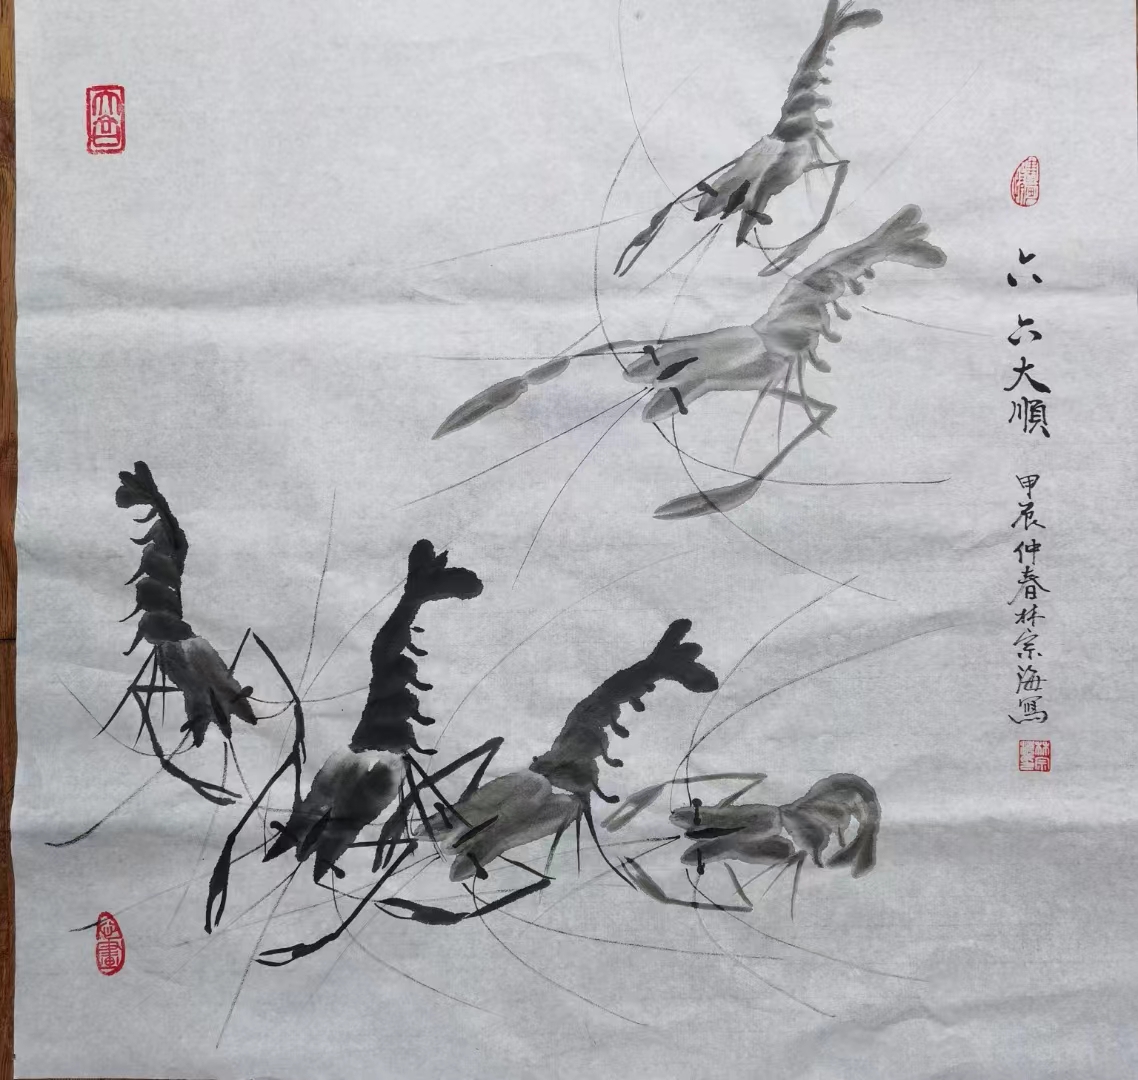 六六大順
甲辰仲春林宗海寫